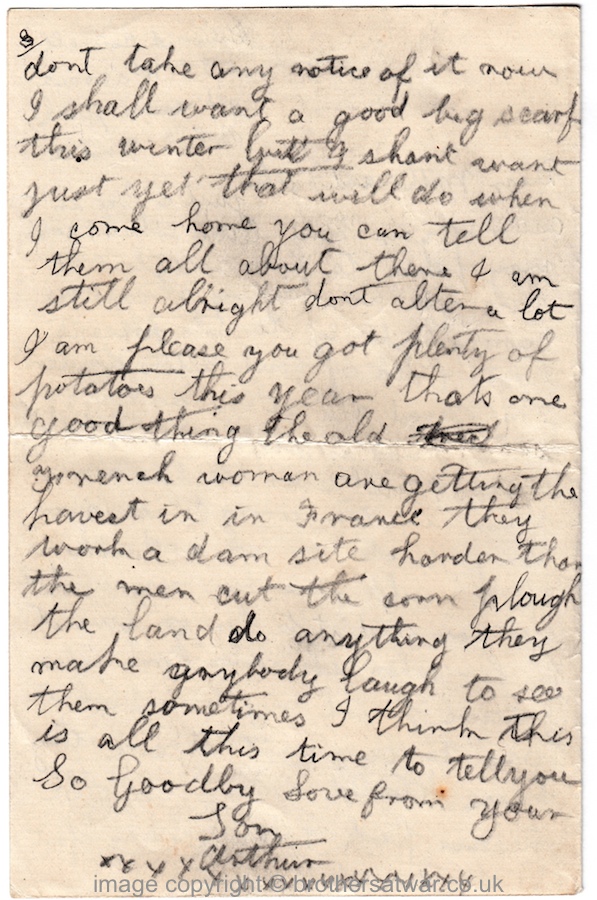 3/
dont take any notice of it now
I shall want a good big scarf
this winter but I shant want
just yet that will do when
I come home you can tell
them all about there I am
still alright dont alter a lot
I am please you got plenty of
potatoes this year thats one
good thing the old
french woman are getting the
havest in in France they
work a dam site harder than
the men cut the corn plough
the land do anything they
make anybody laugh to see
them sometimes I think this
is all this time to tell you
So Goodby Love from your
Son
Arthur
image copyright © brothersatwar.co.uk